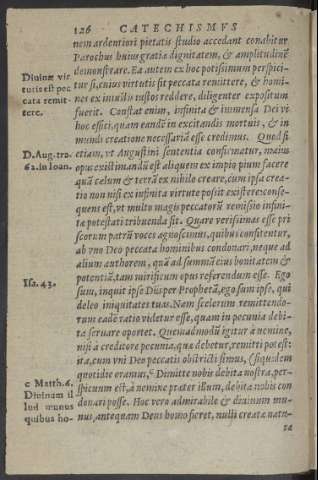 126 CATECHISMVS
nem ardentiori pietatis studio accedant conabitur
Parochus huius gratiæ dignitatem, & amplitudinẽ
demonstrare. Ea autem ex hoc potissimum perspici-
Diuinæ vir
tur si, cuius virtutis sit peccata remittere, & homi-
tutis est pec
nes ex iniustis iustos reddere, diligenter expositum
cata remit-
fuerit. Constat enim, infinita & immensa Dei vi
tere.
hoc effici, quam eandẽ in excitandis mortuis, & in
mundi creatione necessariã esse credimus. Quod si
D. Aug. tra.
etiam, vt Augustini sententia confirmatur, maius
62. in Ioan.
opus existimandũ est aliquem ex impio pium facere
quã cælum & terrã ex nihilo creare, cum ipsa crea-
tio non nisi ex infinita virtute possit existere: conse-
quens est, vt multo magis peccatorũ remissio infini-
tæ potestati tribuenda sit. Quare verissimas esse pri
scorum patrũ voces agnoscimus, quibus confitentur,
ab vno Deo peccata hominibus condonari, neque ad
alium authorem, quã ad summã eius bonitatem &
potentiã, tam mirificum opus referendum esse. Ego
Isa. 43.
sum, inquit ipse Dñs per Prophetã, ego sum ipse, qui
deleo iniquitates tuas. Nam scelerum remittendo-
rum eadẽ ratio videtur esse, quam in pecunia debi-
ta seruare oportet. Quemadmodũ igitur à nemine,
nisi à creditore pecunia, quæ debetur, remitti potest:
ita, cum vni Deo peccatis obstricti simus, (siquidem
quotidie oramus, c Dimitte nobis debita nostra, per-
c Matth. 6.
spicuum est, à nemine præter illum, debita nobis con
Diuinum il
donari posse. Hoc vero admirabile & diuinum mu-
lud munus
nus, antequam Deus homo fieret, nulli creatæ natu-
quibus ho-
ræ